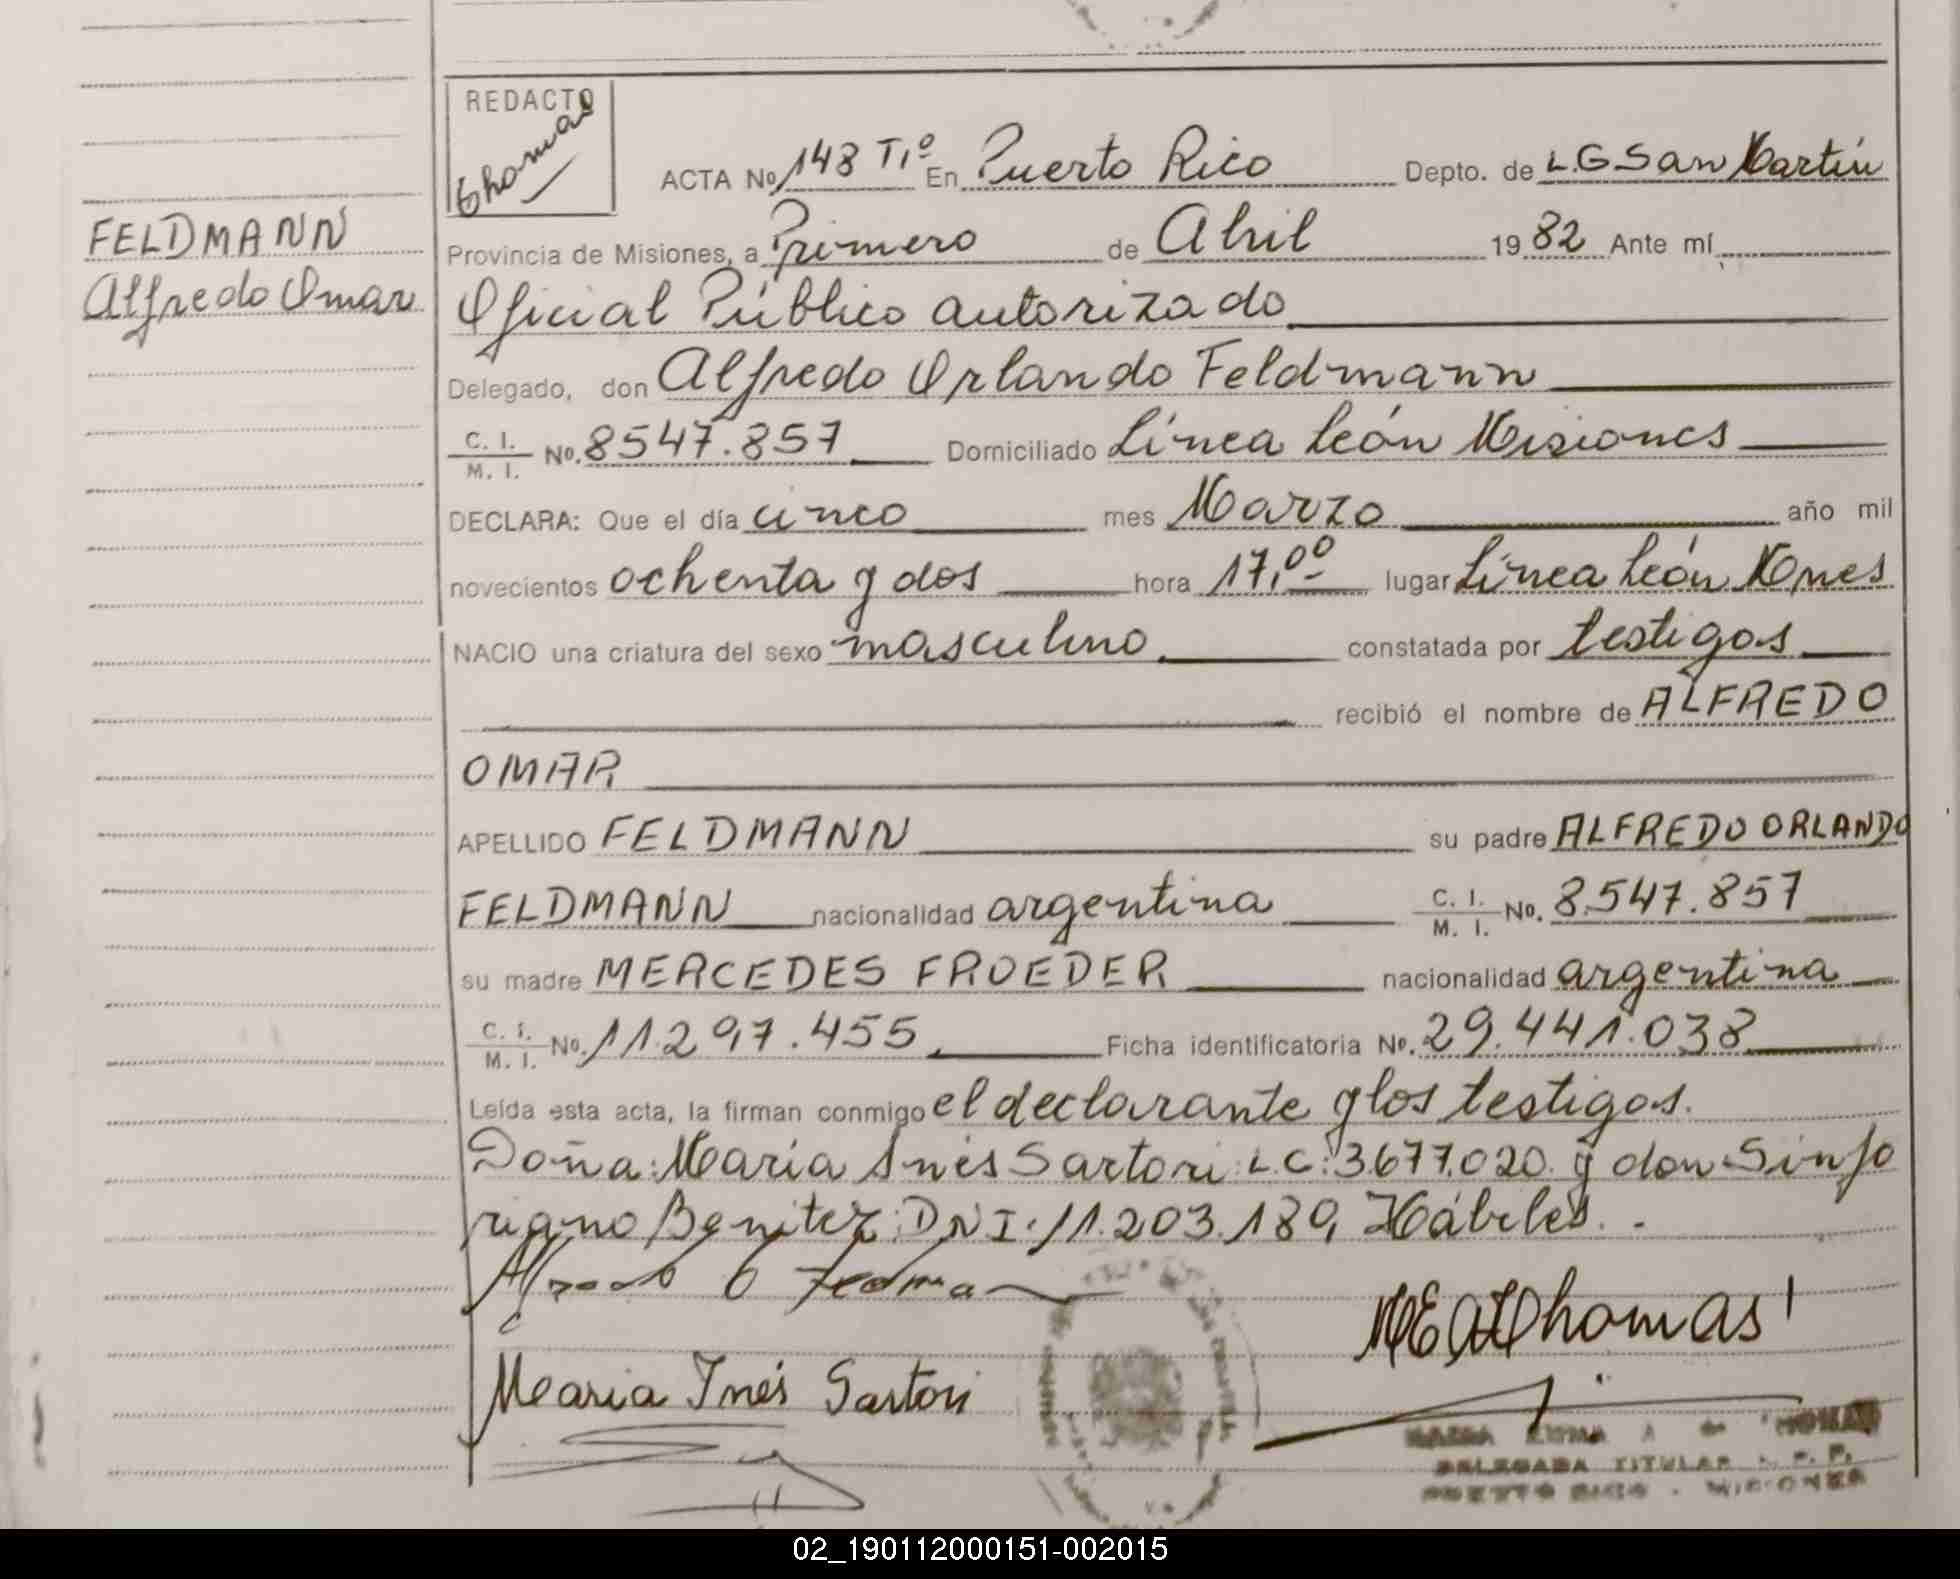 REDACTO
Thomas
ACTA No 148 Tº En Puerto Rico Depto. de L.G San Martín
FELDMANN
Alfredo Omar
Provincia de Misiones, a Primero de Abril 1982 Ante mí
Oficial Público autorizado
Delegado, don Alfredo Orlando Feldmann
C. I. M. I. No. 8547.857 Domiciliado Línea León Misiones
DECLARA: Que el día cinco mes Marzo año mil
novecientos ochenta y dos hora 17,00 lugar Línea León Mnes
NACIO una criatura del sexo masculino constatada por testigos
recibió el nombre de ALFREDO
OMAR
APELLIDO FELDMANN su padre ALFREDO ORLANDO
FELDMANN nacionalidad argentina C. I. M. I. No. 8.547.857
su madre MERCEDES FROEDER nacionalidad argentina
C. I. M. I. No. 11.297.455 Ficha identificatoria No. 29.441.038
Leída esta acta, la firman conmigo el declarante y los testigos.
Doña: María Inés Sartori: L.C: 3.677.020. y don Sinfo
riano Benitez: DNI: 11.203.189, Hábiles. -
Maria Inés Sartori
Thomas
DELEGADA TITULAR R. P. P.
PUERTO RICO - MISIONES
02_190112000151-002015